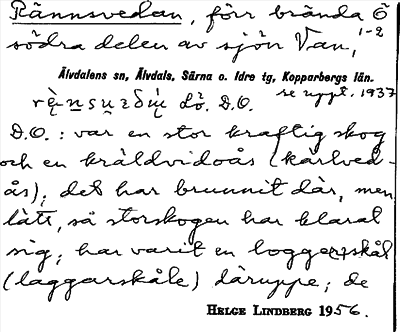 Rännsvedan, förr brända Ö
södra delen av sjön Van, 1-2
Älvdalens sn, Älvdals, Särna o. Idre tg, Kopparbergs län.
Lö. D.O. se uppt. 1937
D.O.: var en stor kraftig skog
och en kräldvidoås (kärlved-
ås); det har brunnit där, men
lätt, så storskogen har klarat
sig; har varit en loggerskål
(laggarskåle) däruppe; de
HELGE LINDBERG 1956.